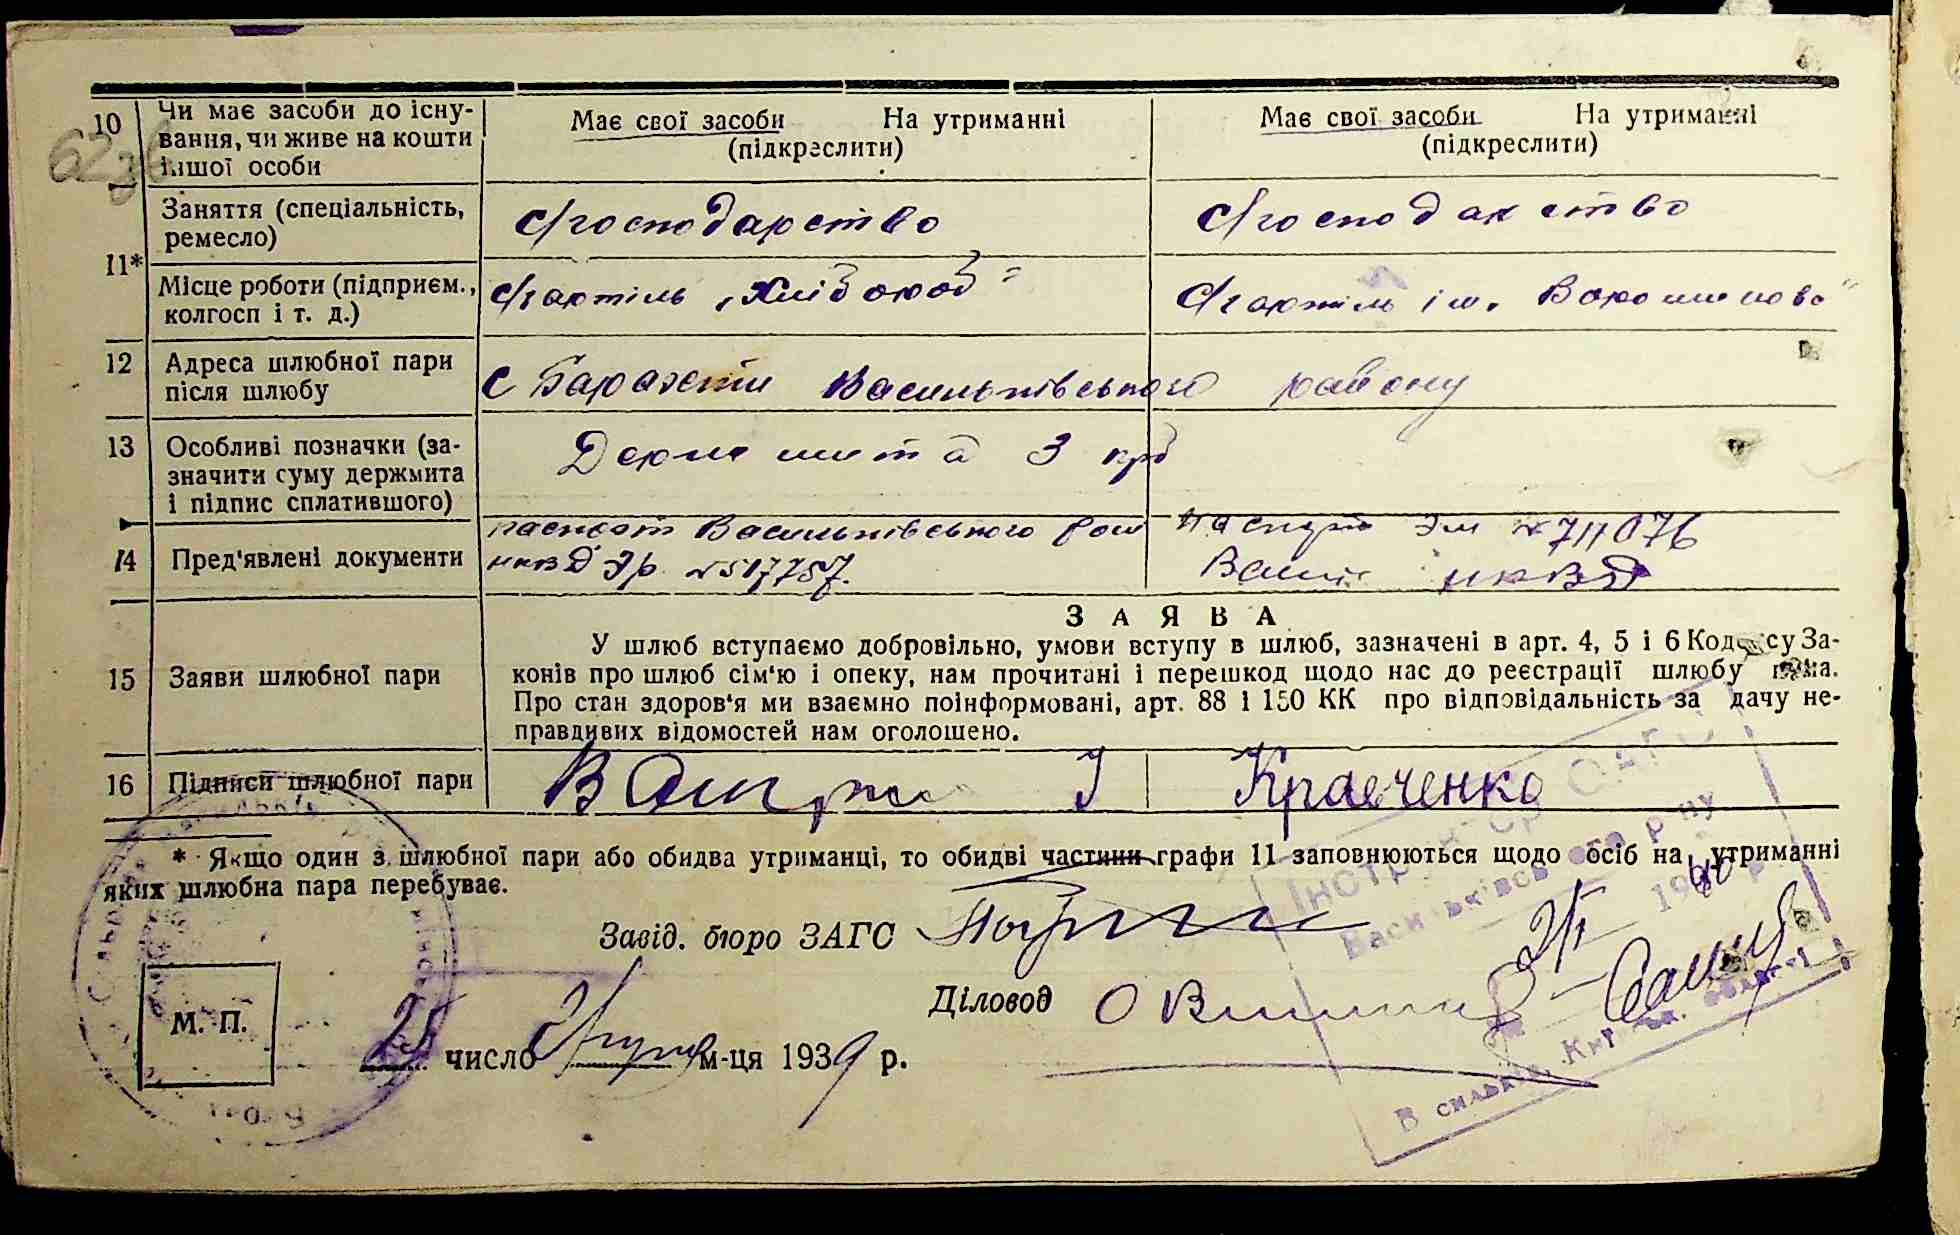 10 Чи має засоби до існу-
вання, чи живе на кошти
іншої особи
Має свої засоби На утриманні
(підкреслити)
Має свої засоби На утриманні
(підкреслити)
11* Заняття (спеціальність,
ремесло)
с/господарство
с/господарство
Місце роботи (підприєм.,
колгосп і т. д.)
с/г артіль „Хлібороб"
с/г артіль ім. Ворошилова"
12 Адреса шлюбної пари
після шлюбу
с Барахти Васильківського району
13 Особливі позначки (за-
значити суму держмита
і підпис сплатившого)
Держмита 3 крб
14 Пред'явлені документи
паспорт Васильківського
НКВД № 517757.
паспорт № 711076
НКВД
З А Я В А
15 Заяви шлюбної пари
У шлюб вступаємо добровільно, умови вступу в шлюб, зазначені в арт. 4, 5 і 6 Кодексу За-
конів про шлюб сім'ю і опеку, нам прочитані і перешкод щодо нас до реєстрації шлюбу нема.
Про стан здоров'я ми взаємно поінформовані, арт. 88 і 150 КК про відповідальність за дачу не-
правдивих відомостей нам оголошено.
16 Підписи шлюбної пари
Кравченко
* Якщо один з шлюбної пари або обидва утриманці, то обидві частини графи 11 заповнюються щодо осіб на утриманні
яких шлюбна пара перебуває.
Завід. бюро ЗАГС
Діловод
М. П.
25 число м-ця 1939 р.